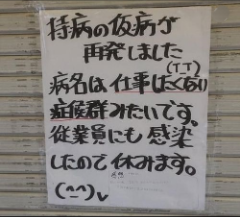 持病の仮病が
再発しました
(T_T)
病名は仕事したくない
症候群みたいです。
従業員にも感染
したので休みます。
(^-^)v